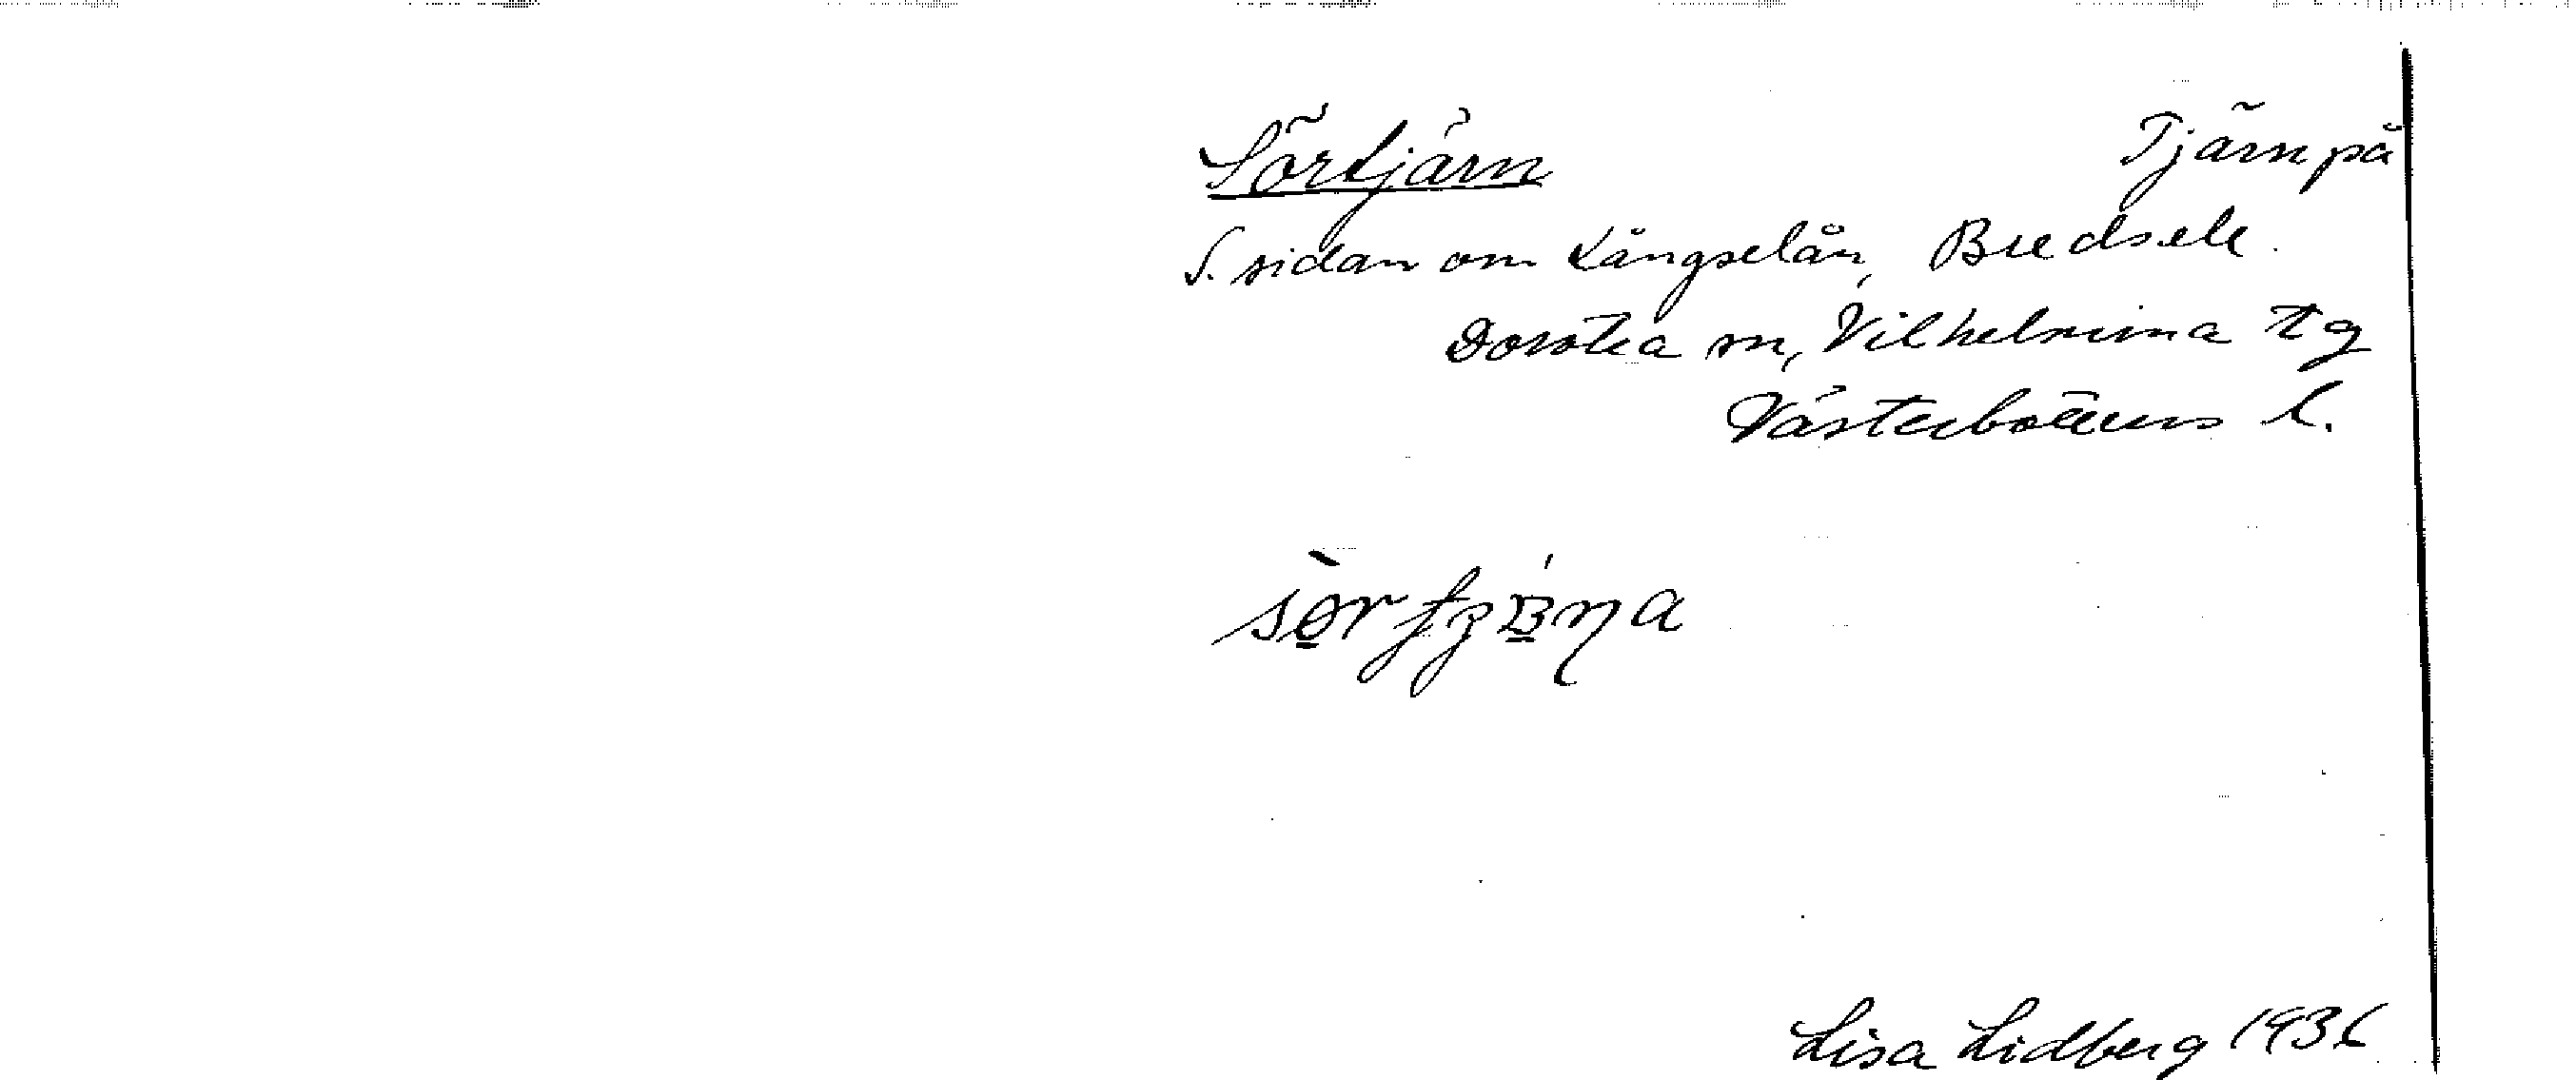 Sörtjärn Tjärn på
S. sidan om Långselån, Bredsele.
Dorotea sn, Vilhelmina tg
Västerbottens l.
Lisa Lidberg 1936